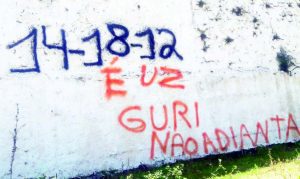 14-18-12
É UZ
GURI
NAOADIANTA